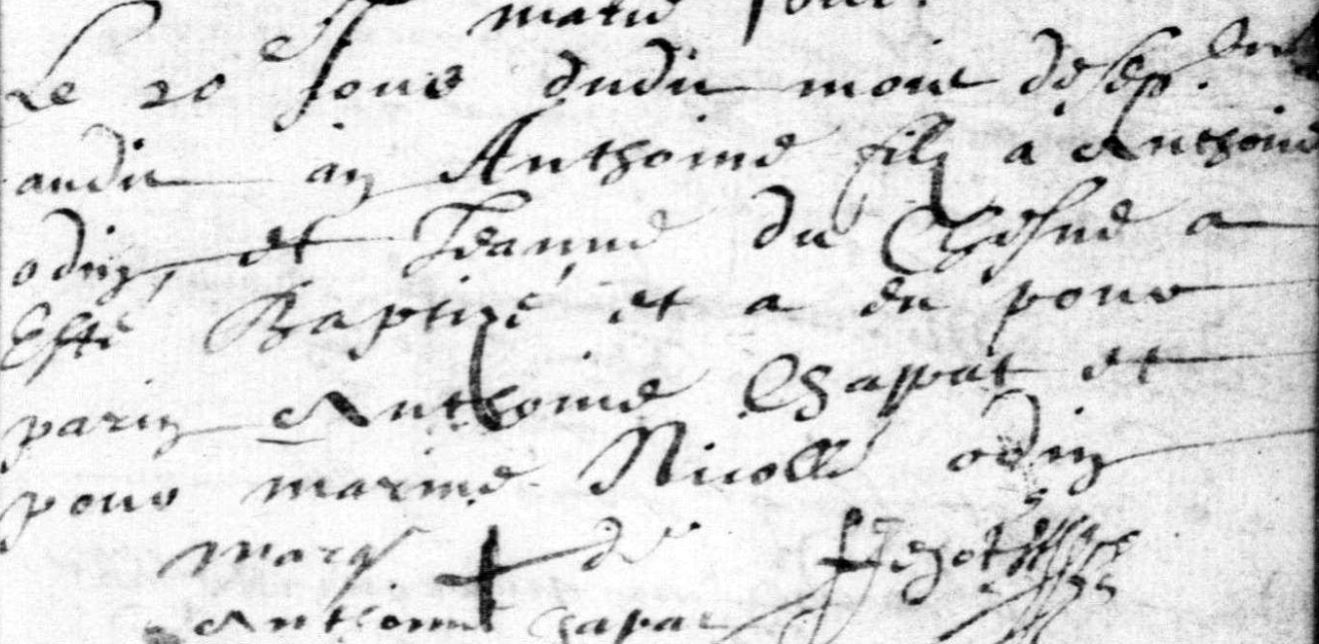 Le 20e Jour dudit mois de sep.
audit an Anthoine filz a Anthoine
odin, et Jeanne du Chesne a
Esté Baptizé et a eu pour
parin Anthoine Chapat et
pour marine Nicolle odin
marq. + de
Anthoine Chapat